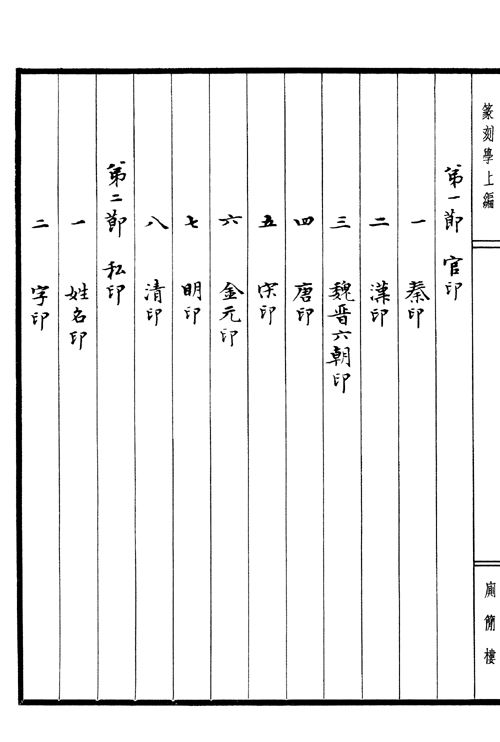 篆刻學上編
第一節 官印
一 秦印
二 漢印
三 魏晋六朝印
四 唐印
五 宋印
六 金元印
七 明印
八 清印
第二節 私印
一 姓名印
二 字印
簡樓